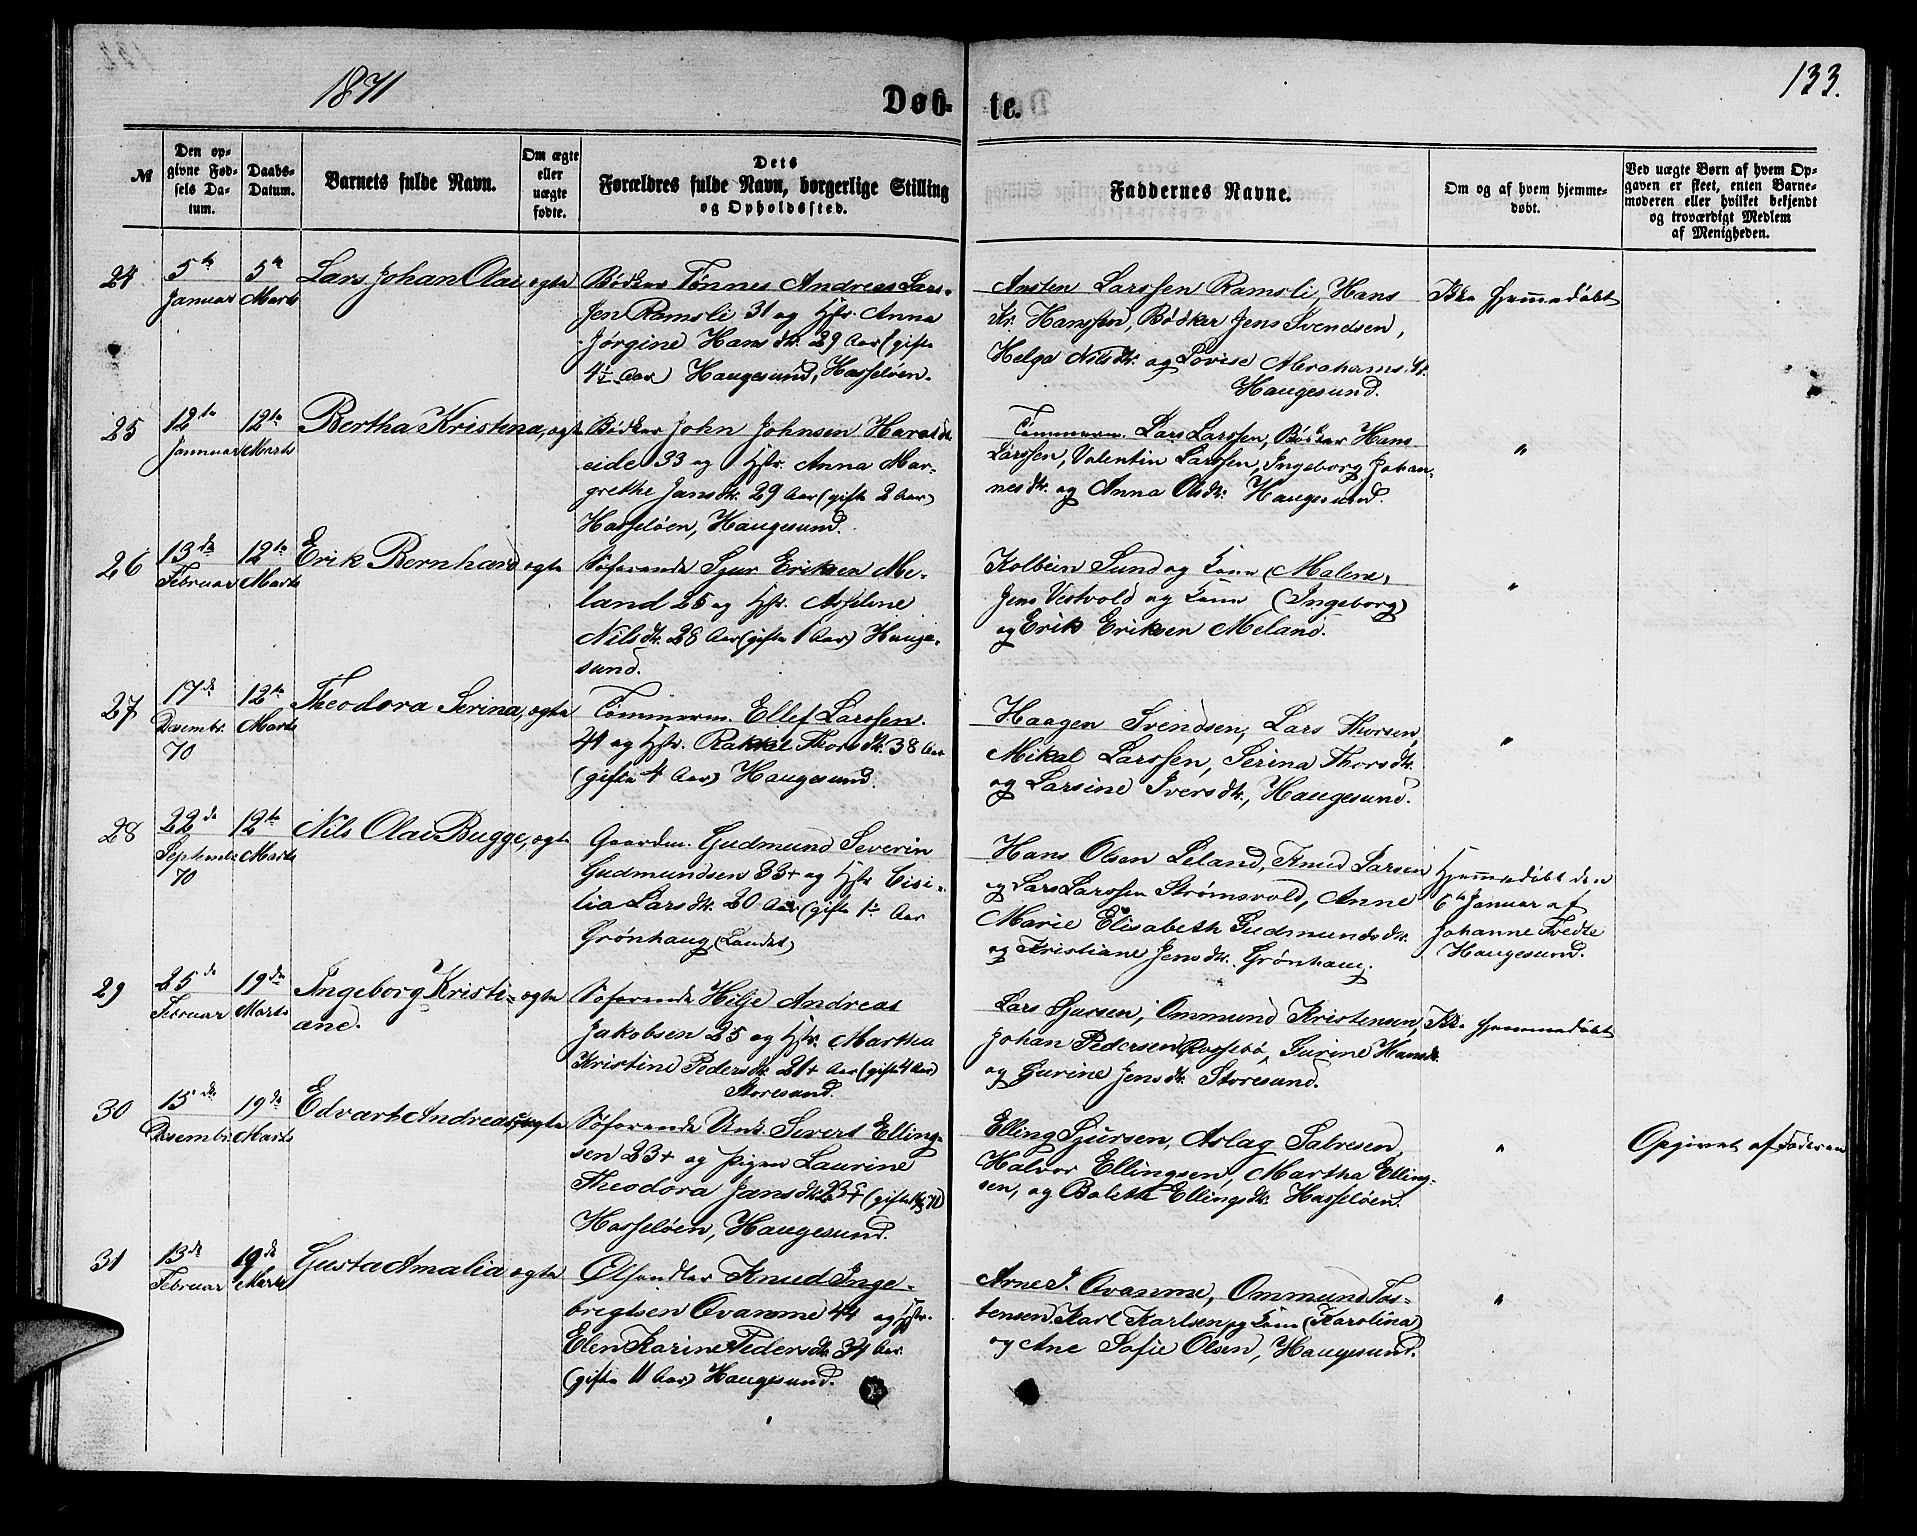 1871
133.
Døb-
te.
№
Den op-
givne Fød-
sels Da-
tum.
Daabs-
Datum.
Barnets fulde Navn.
Om ægte
eller
uægte
fødte.
Dets
Forældres fulde Navn, borgerlige Stilling
og Opholdssted.
Faddernes Navne.
Om og af hvem hjemme-
døbt.
Ved uægte Børn af hvem Op-
gaven er skeet, enten Barne-
moderen eller hvilket bekjendt
og troværdigt Medlem
af Menigheden.
24
5te
Januar
5te
Marts
Lars Johan Olai
ægte
Bødker Tønnes Andreas Lars-
sen Ramsli 31 og Hstr. Anna
Jørgine Hansdtr. 29 Aar (gifte
4½ Aar) Haugesund, Hasseløen.
Ansten Larssen Ramsli, Hans
Kr. Hanssen, Bødker Jens Svendsen,
Helga Nilsdtr. og Lovise Abrahamsdtr.
Haugesund.
Ikke hjemmedøbt
25
12te
Januar
12te
Marts
Bertha Kristina,
ægte
Bødker John Johnsen Harods-
eide 33 og Hstr. Anna Mar-
grethe Jansdtr. 29 Aar (gifte 2 Aar)
Hasseløen, Haugesund.
Tømmerm. Lars Larssen, Bødker Hans
Larssen, Valentin Larssen, Ingeborg Johan-
nesdtr. og Anna Olsdtr. Haugesund.
"
26
13de
Februar
12te
Marts
Erik Bernhard
ægte
Søfarende Sjur Eriksen Me-
land 25 og Hstr. Asseline
Nilsdtr. 28 Aar (gifte 1 Aar) Hauge-
sund.
Kolbein Sund og Kone (Malene,
Jens Vestvold og Kone (Ingeborg)
og Erik Eriksen Meland.
"
27
17de
Desembr.
70
12te
Marts
Theodora Serina,
ægte
Tømmerm. Ellef Larssen
44 og Hstr. Rakkel Thorsdtr. 38 Aar
(gifte 4 Aar) Haugesund.
Haagen Svendsen, Lars Thorsen,
Mikal Larssen, Serina Thorsdtr.
og Larsine Iversdtr., Haugesund.
"
28
22de
Septembr
70
12te
Marts
Nils Olai Bugge,
ægte
Gaardm. Gudmund Severin
Gudmundsen 33+ og Hstr Cisi-
lia Larsdtr. 20 Aar (gifte 1½ Aar
Grønhaug (Landet)
Hans Olsen Leland, Knud Larsen
og Lars Larssen Strømsvold, Anne
Marie Elisabeth Gudmundsdtr.
og Kristiane Jensdtr. Grønhaug.
Hjemmedøbt den
6te Januar af
Johanne Tvedte
Haugesund.
29
25de
Februar
19de
Marts
Ingeborg Kristi-
ane.
ægte
Søfarende Hilje Andreas
Jakobsen 25 og Hstr. Martha
Kristine Pedersdtr. 21+ Aar (gifte 4 Aar)
Storesund.
Lars Sjursen, Ommund Kristensen,
Johan Pedersen Rossebø, Gurine Hansdtr.
og Gurine Jensdtr. Storesund.
Ikke hjemmedøbt
30
15de
Desembr.
19de
Marts
Edvart Andreas,
uægte
Søfarende Unk. Sivert Elling-
sen 23+ og Pigen Laurine
Theodora Jansdtr. 23+
Hasseløen, Haugesund.
Elling Sjursen, Aslag Salvesen,
Halvor Ellingsen, Martha Elling-
sen, og Bolette Ellingsdtr. Hasseløen.
"
Opgivet af Faderen
31
13de
Februar
19de
Marts
Gusta Amalia
ægte
Ølhandler Knud Inge-
bregtsen Qvamme 44 og Hstr.
Elen Karine Pedersdtr. 34 Aar
(gifte 11 Aar) Haugesund.
Arne J. Qvamme, Ommund Tos-
tensen, Karl Karlsen og Kone (Karolina)
og Ane Sofie Olsen, Haugesund.
"